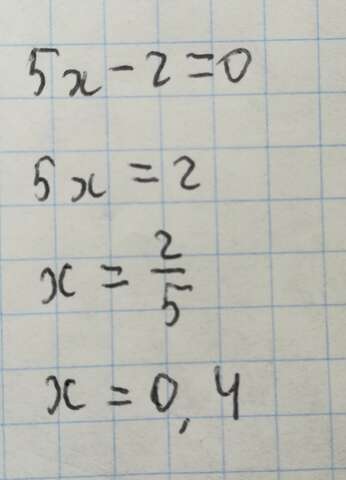 5x - 2 = 0
5x = 2
x = 2/5
x = 0,4